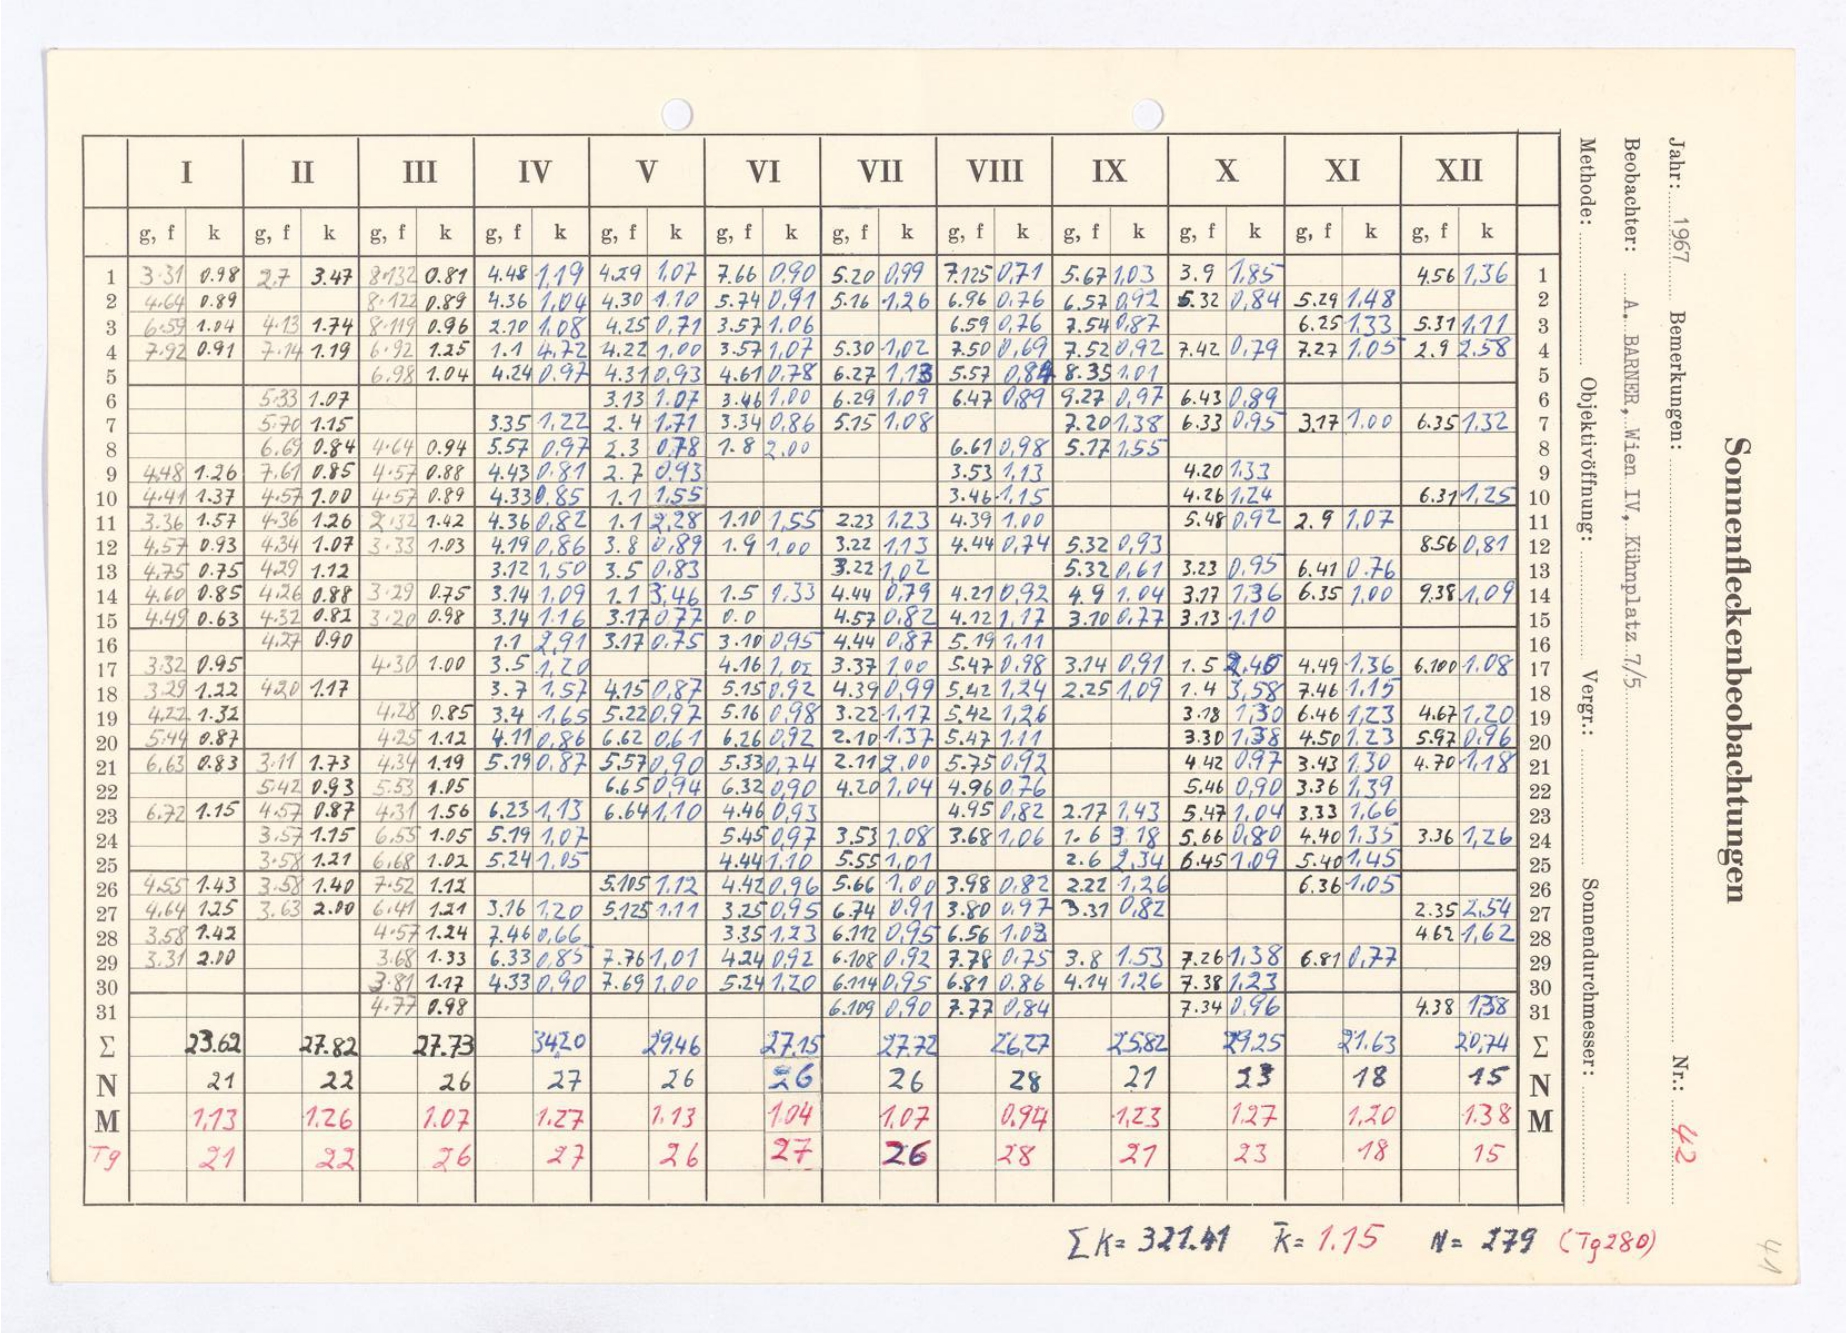 Sonnenfleckenbeobachtungen
Jahr: 1967 Bemerkungen: Nr.: 42
Beobachter: A. BARNER, Wien IV, Kühnplatz 7/5
Methode: Objektivöffnung: Vergr.: Sonnendurchmesser:
I II III IV V VI VII VIII IX X XI XII
g, f k g, f k g, f k g, f k g, f k g, f k g, f k g, f k g, f k g, f k g, f k g, f k
1 3.31 0.98 2.7 3.47 8.132 0.81 4.48 1,19 4.29 1,07 7.66 0,90 5.20 0,99 7.125 0,71 5.67 1,03 3.9 1,85 4.56 1,36 1
2 4.64 0.89 8.122 0.89 4.36 1,04 4.30 1.10 5.74 0,91 5.16 1,26 6.96 0,76 6.57 0,92 5.32 0,84 5.29 1,48 2
3 6.59 1.04 4.13 1.74 8.119 0.96 2.10 1,08 4.25 0,71 3.57 1,06 6.59 0,76 7.54 0,87 6.25 1,33 5.31 1,11 3
4 7.92 0.91 7.14 1.19 6.92 1.25 1.1 4,72 4.22 1,00 3.57 1,07 5.30 1,02 7.50 0,69 7.52 0,92 7.42 0,79 7.27 1,05 2.9 2,58 4
5 6.98 1.04 4.24 0.97 4.31 0,93 4.61 0,78 6.27 1,13 5.57 0,84 8.35 1.01 5
6 5.33 1.07 3.13 1.07 3.46 1.00 6.29 1,09 6.47 0,89 9.27 0,97 6.43 0,89 6
7 5.70 1.15 3.35 1,22 2.4 1,71 3.34 0,86 5.15 1,08 7.20 1,38 6.33 0,95 3.17 1,00 6.35 1,32 7
8 6.69 0.84 4.64 0.94 5.57 0,97 2.3 0,78 1.8 2,00 6.61 0,98 5.17 1,55 8
9 4.48 1.26 7.61 0.85 4.57 0.88 4.43 0,81 2.7 0,93 3.53 1,13 4.20 1,33 9
10 4.41 1.37 4.57 1.00 4.57 0.89 4.33 0,85 1.1 1,55 3.46 1,15 4.26 1,24 6.31 1,25 10
11 3.36 1.57 4.36 1.26 2.32 1.42 4.36 0,82 1.1 2,28 1.10 1,55 2.23 1,23 4.39 1,00 5.48 0,92 2.9 1,07 11
12 4.57 0.93 4.34 1.07 3.33 1.03 4.19 0,86 3.8 0,89 1.9 1,00 3.22 1,13 4.44 0,74 5.32 0,93 8.56 0,81 12
13 4.75 0.75 4.29 1.12 3.12 1,50 3.5 0,83 3.22 1,02 5.32 0,61 3.23 0,95 6.41 0.76 13
14 4.60 0.85 4.26 0.88 3.29 0.75 3.14 1,09 1.1 3,46 1.5 1.33 4.44 0,79 4.21 0,92 4.9 1.04 3.17 1,36 6.35 1,00 9.38 1,09 14
15 4.49 0.63 4.32 0.82 3.20 0.98 3.14 1.16 3.17 0,77 0.0 4.57 0,82 4.12 1,17 3.10 0,77 3.13 1.10 15
16 4.27 0.90 1.1 2,91 3.17 0.75 3.10 0,95 4.44 0,87 5.19 1,11 16
17 3.32 0.95 4.30 1.00 3.5 1,20 4.16 1,02 3.37 1,00 5.47 0,98 3.14 0,91 1.5 2,46 4.49 1,36 6.100 1.08 17
18 3.29 1.22 4.20 1.17 3.7 1,57 4.15 0,87 5.15 0,92 4.39 0,99 5.42 1,24 2.25 1,09 1.4 3,58 7.46 1,15 18
19 4.22 1.32 4.28 0.85 3.4 1,65 5.22 0,97 5.16 0,98 3.22 1,17 5.42 1,26 3.18 1,30 6.46 1,23 4.67 1,20 19
20 5.44 0.87 4.25 1.12 4.11 0,86 6.62 0,61 6.26 0,92 2.10 1,37 5.47 1.11 3.30 1,38 4.50 1,23 5.97 0,96 20
21 6.63 0.83 3.11 1.73 4.34 1.19 5.19 0,87 5.57 0,90 5.33 0,74 2.11 2,00 5.75 0,92 4.42 0,97 3.43 1,30 4.70 1,18 21
22 5.42 0.93 5.53 1.05 6.65 0,94 6.32 0,90 4.20 1,04 4.96 0,76 5.46 0,90 3.36 1,39 22
23 6.72 1.15 4.57 0.87 4.31 1.56 6.23 1,13 6.64 1,10 4.46 0,93 4.95 0,82 2.17 1,43 5.47 1,04 3.33 1,66 23
24 3.57 1.15 6.55 1.05 5.19 1,07 5.45 0,97 3.53 1,08 3.68 1,06 1.6 3,18 5.66 0,80 4.40 1,35 3.36 1,26 24
25 3.58 1.21 6.68 1.02 5.24 1.05 4.44 1,10 5.55 1,01 2.6 2,34 6.45 1,09 5.40 1,45 25
26 4.55 1.43 3.58 1.40 7.52 1.12 5.105 1,12 4.42 0,96 5.66 1,00 3.98 0,82 2.22 1,26 6.36 1,05 26
27 4.64 1.25 3.63 2.00 6.41 1.21 3.16 1,20 5.125 1.11 3.25 0,95 6.74 0.91 3.80 0,97 3.31 0,82 2.35 2,54 27
28 3.58 1.42 4.57 1.24 7.46 0,66 3.35 1,23 6.112 0,95 6.56 1.03 4.62 1,62 28
29 3.31 2.00 3.68 1.33 6.33 0,85 7.76 1,01 4.24 0,92 6.108 0,92 7.78 0,75 3.8 1.53 7.26 1,38 6.81 0,77 29
30 3.81 1.17 4.33 0,90 7.69 1.00 5.24 1,20 6.114 0,95 6.81 0.86 4.14 1,26 7.38 1,23 30
31 4.77 0.98 6.109 0,90 7.77 0,84 7.34 0,96 4.38 1,38 31
Σ 23.62 27.82 27.73 34.20 29.46 27.15 27.72 26,27 25,82 29,25 21.63 20,74 Σ
N 21 22 26 27 26 26 26 28 21 23 18 15 N
M 1,13 1.26 1.07 1.27 1.13 1.04 1.07 0.94 1,23 1.27 1,20 1.38 M
Tg 21 22 26 27 26 27 26 28 21 23 18 15
ΣK = 321.41 k̄ = 1.15 N = 279 (Tg 280)
41